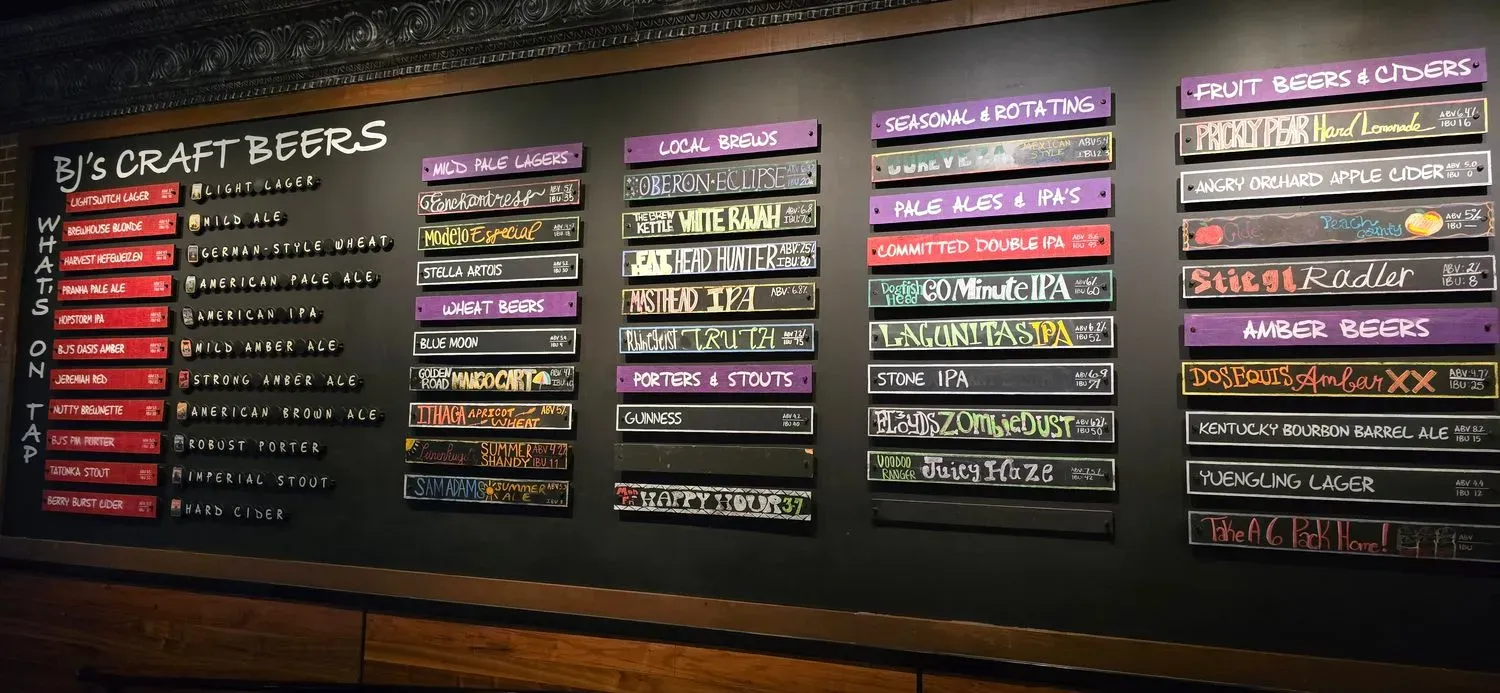 BJ's CRAFT BEERS
WHAT'S ON TAP
LIGHTSWITCH LAGER LIGHT LAGER
BREWHOUSE BLONDE MILD ALE
HARVEST HEFEWEIZEN GERMAN-STYLE WHEAT
PIRANHA PALE ALE AMERICAN PALE ALE
HOPSTORM IPA AMERICAN IPA
BJ'S OASIS AMBER MILD AMBER ALE
JEREMIAH RED STRONG AMBER ALE
NUTTY BREWNETTE AMERICAN BROWN ALE
BJ'S PM PORTER ROBUST PORTER
TATONKA STOUT IMPERIAL STOUT
BERRY BURST CIDER HARD CIDER
MILD PALE LAGERS
Enchantress
Modelo Especial
STELLA ARTOIS
WHEAT BEERS
BLUE MOON
GOLDEN ROAD MANGO CART
ITHACA APRICOT WHEAT ABV 5%
SUMMER SHANDY ABV 4.2% IBU 11
SAM ADAMS SUMMER ALE
LOCAL BREWS
OBERON ECLIPSE
THE BREW KETTLE WITTE RAJAH ABV: 6.8 IBU: 70
FAT HEAD HUNTER ABV: 7.5% IBU: 80
MASTHEAD IPA ABV: 6.8%
Rhinegeist TRUTH
PORTERS & STOUTS
GUINNESS
HAPPY HOUR 3-7
SEASONAL & ROTATING
MEXICAN STYLE
PALE ALES & IPA'S
COMMITTED DOUBLE IPA
Dogfish Head 60 Minute IPA ABV 6% IBU 60
LAGUNITAS IPA ABV 6.2% IBU 52
STONE IPA ABV 6.9 IBU 71
FLOYDS ZOMbiE DUST ABV 6.2% IBU 50
VOODOO RANGER Juicy Haze
FRUIT BEERS & CIDERS
PRICKLY PEAR Hard Lemonade IBU 16
ANGRY ORCHARD APPLE CIDER ABV 5.0 IBU 0
Peach County ABV 5%
Stiegl Radler ABV: 2% IBU: 8
AMBER BEERS
DOS EQUIS Ambar XX ABV 4.7% IBU: 25
KENTUCKY BOURBON BARREL ALE ABV 8.2 IBU 15
YUENGLING LAGER ABV 4.4 IBU 12
Take A 6 Pack Home! ABV IBU